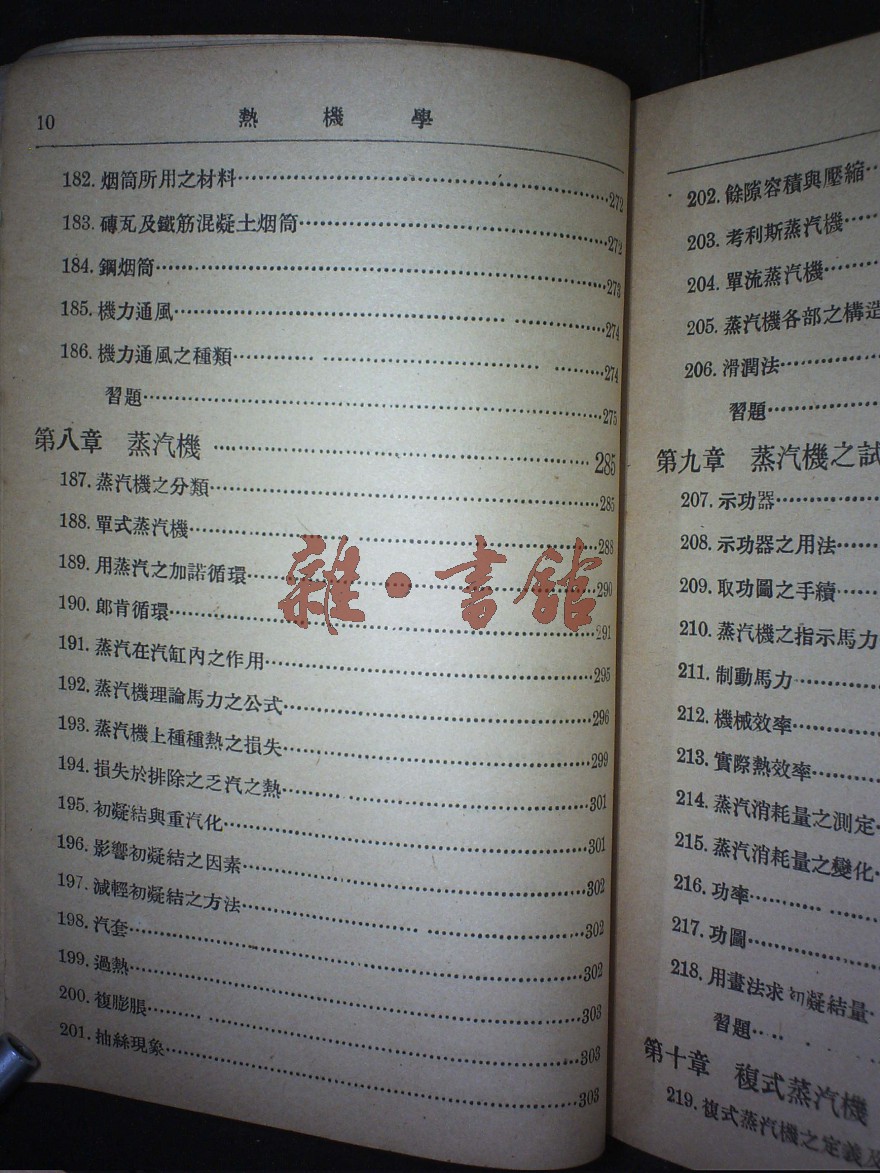 10 熱機學
182. 烟筒所用之材料……272
183. 磚瓦及鐵筋混凝土烟筒……272
184. 鋼烟筒……273
185. 機力通風……274
186. 機力通風之種類……274
習題……275
第八章 蒸汽機……285
187. 蒸汽機之分類……285
188. 單式蒸汽機……288
189. 用蒸汽之加諾循環……290
190. 郎肯循環……291
191. 蒸汽在汽缸內之作用……295
192. 蒸汽機理論馬力之公式……296
193. 蒸汽機上種種熱之損失……299
194. 損失於排除之乏汽之熱……301
195. 初凝結與重汽化……301
196. 影響初凝結之因素……302
197. 減輕初凝結之方法……302
198. 汽套……302
199. 過熱……303
200. 複膨脹……303
201. 抽絲現象……303
雜·書館
202. 餘隙容積與壓縮……
203. 考利斯蒸汽機……
204. 單流蒸汽機……
205. 蒸汽機各部之構造
206. 滑潤法……
習題……
第九章 蒸汽機之試
207. 示功器……
208. 示功器之用法……
209. 取功圖之手續……
210. 蒸汽機之指示馬力
211. 制動馬力……
212. 機械效率……
213. 實際熱效率……
214. 蒸汽消耗量之測定……
215. 蒸汽消耗量之變化……
216. 功率……
217. 功圖……
218. 用畫法求初凝結量……
習題……
第十章 複式蒸汽機
219. 複式蒸汽機之定義及